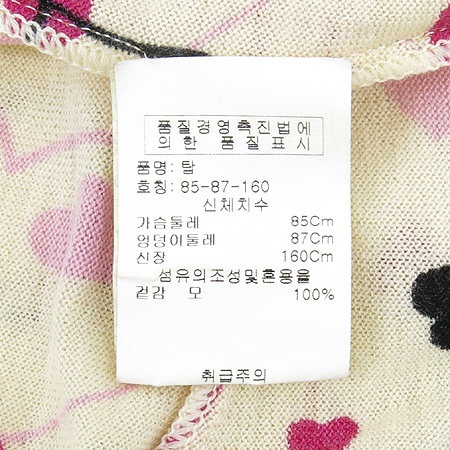 품질경영촉진법에
의한 품질표시
품명: 탑
호칭: 85-87-160
신체치수
가슴둘레 85Cm
엉덩이둘레 87Cm
신장 160Cm
섬유의조성및혼용율
겉감 모 100%
취급주의